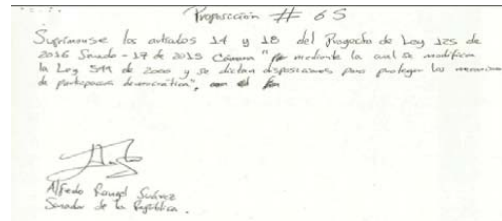 Proposición # 65
Suprimanse los artículos 14 y 18 del Proyecto de Ley 125 de
2016 Senado - 17 de 2015 Cámara "por mediante la cual se modifica
la Ley 599 de 2000 y se dictan disposiciones para proteger los mecanismos
de participación democrática",
Alfredo Rangel Suárez
Senador de la República.